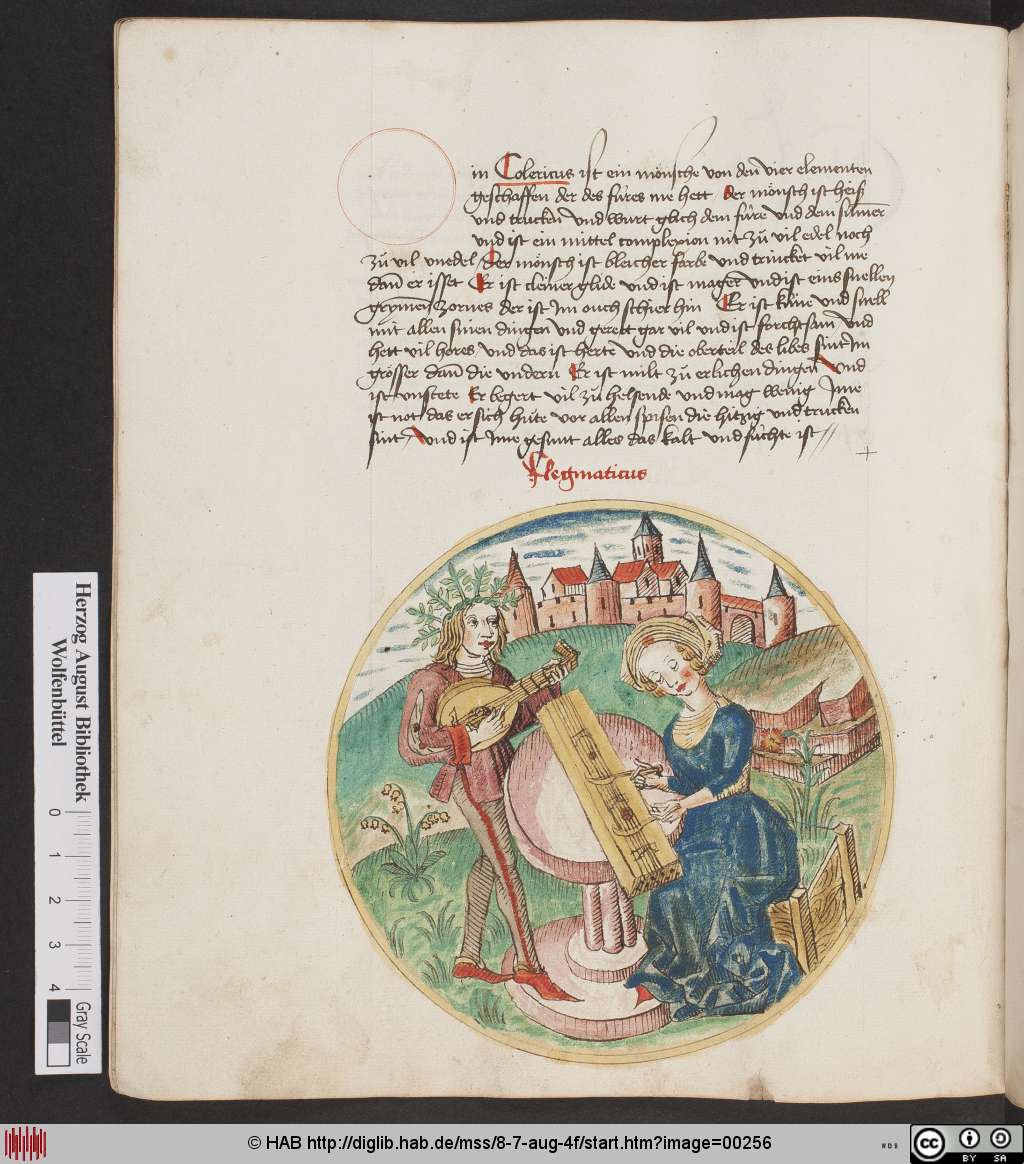 in Colericus ist ein mönsche von den vier elementen
geschaffen der des fúres me hett der mönsch ist heiß
vnd trucken vnd wurt glich dem fúre vnd dem summer
vnd ist ein mittel complexion nit zů vil edel noch
zů vil vnedel Der mönsch ist bleicher farbe vnd trincket vil me
dann er isset Er ist cleiner glide vnd ist mager vnd ist eins snellen
grymen zornes der ist Im ouch schier hin Er ist kůne vnd snell
mit allen sinen dingen vnd gerett gar vil vnd ist forchtsam vnd
hett vil hores vnd das ist herte vnd die oberteil des libes sint Im
grösser dann die vndern Er ist milt zů erlichen dingen vnd
ist vnstete Er begert vil zů helsende vnd mag wenig Ime
ist not das er sich hůte vor allen spisen die hitzig vnd trucken
sint vnd ist Ime gesunt alles das kalt vnd fúchte ist //
Flegmaticus
Herzog August Bibliothek
Wolfenbüttel
0 1 2 3 4
Gray Scale
© HAB http://diglib.hab.de/mss/8-7-aug-4f/start.htm?image=00256
cc BY SA